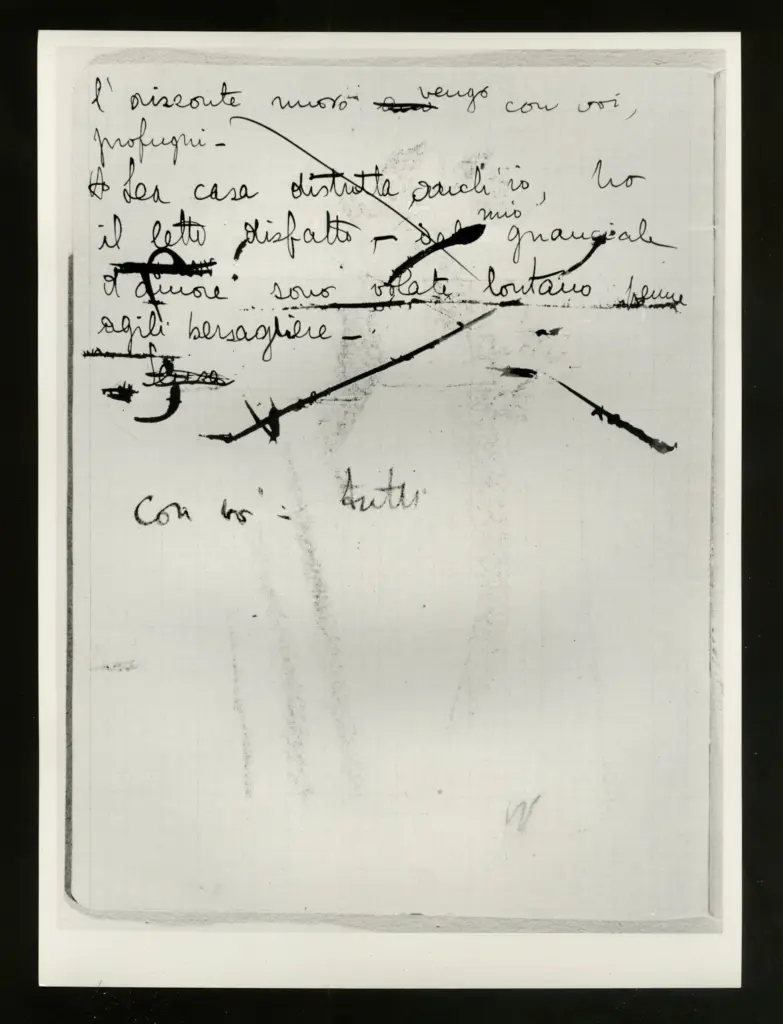 l'orizzonte nuovo vengo con voi,
profughi –
La casa distrutta anch'io, ho
il letto disfatto – dal mio guanciale
d'amore sono volate lontano penne
agili bersagliere –
Con voi –